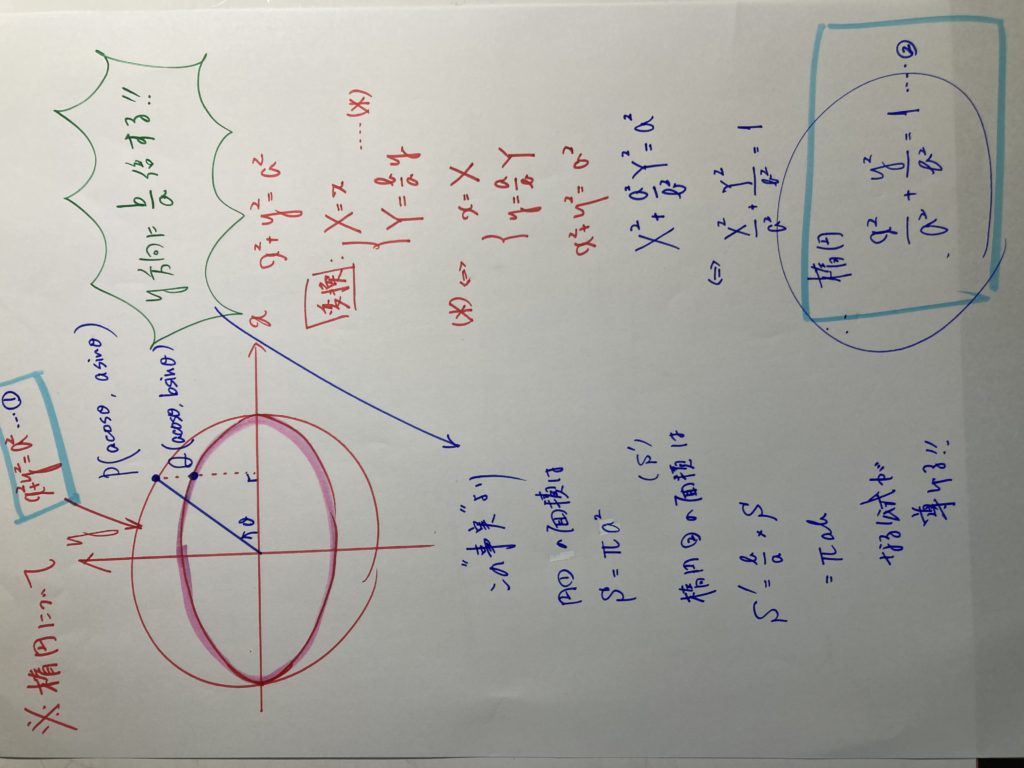 ※ 楕円について
x²+y²=a² …①
y
x
θ
P(acosθ, asinθ)
Q(acosθ, bsinθ)
y方向に b/a 倍する!!
x²+y²=a²
変換:
{ X=x
Y=b/a y ……(*)
(*) ⇔ { x=X
y=a/b Y
x²+y²=a²
X²+a²/b² Y²=a²
⇔ X²/a²+Y²/b²=1
楕円
x²/a²+y²/b²=1 ……②
"この事実"より
円①の面積は
S=πa²
楕円②の面積は (S')
S'=b/a×S
=πab
なる公式が
導ける!!